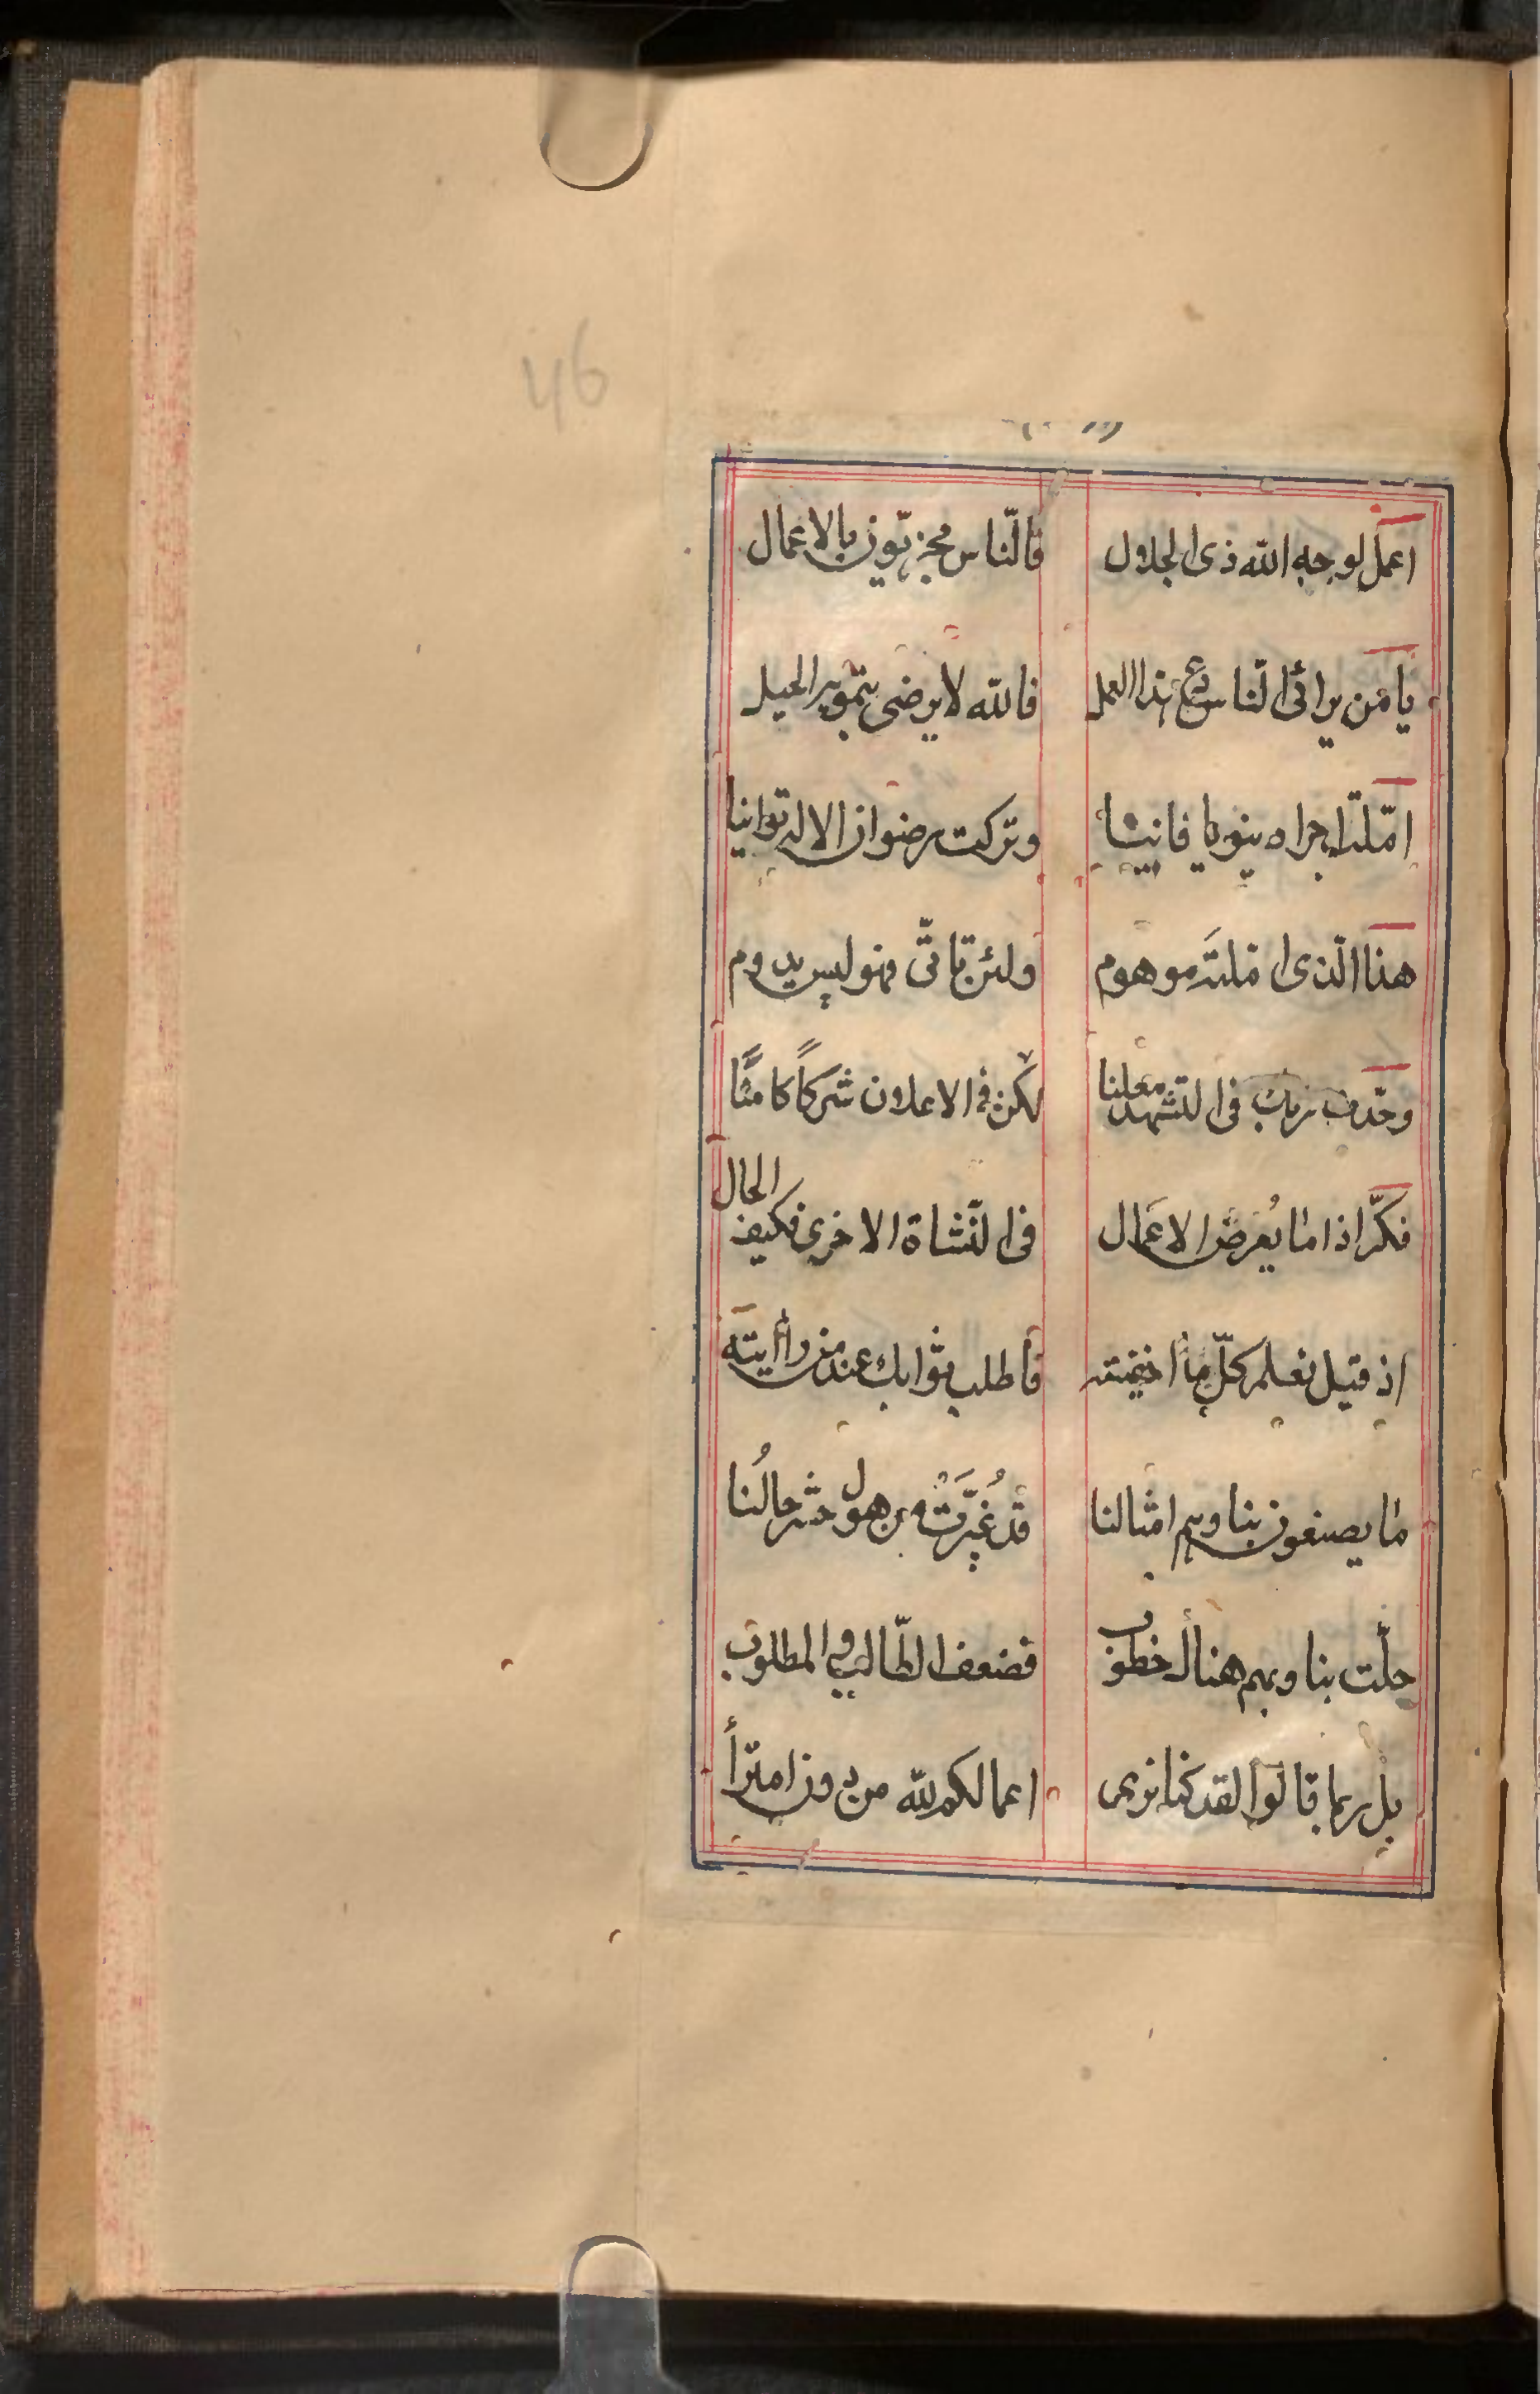 46
اعمل لوجه الله ذى الجلال فالنّاس مجزيّون بالاعمال
يا من يرائى النّاس دع هذا العمل فالله لا يرضى بتمويه الحيل
امّلت اجرا دنيويا فانيا وتركت رضوان الاله توانيا
هذا الّذى املته موهوم ولئن تاتّى فهو ليس يدوم
وحّدت ربك فى التشهد معلنا لكن فى الاعلان شركاً كامنًا
فكّر اذا ما يُعرض الاعمال فى النّشاة الاخرى فكيف الحال
اذ قيل نعلم كلّ ما اخفيته فاطلب ثوابك عند من راأيته
ما يصنعون بنا وهم امثالنا قد غُيّرت من هول حشر حالُنا
حلّت بنا وبهم هناك خطوب فضعف الطّالب والمطلوب
بل ربما قالوا لقد كنا نرى اعمالكم لله من دون امترأ